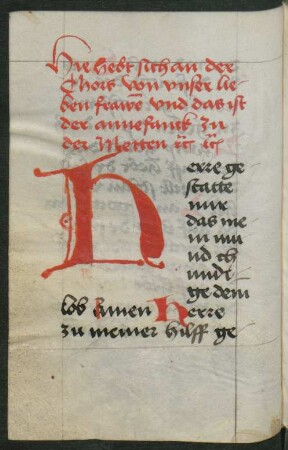 Hie hebt sich an der
Chors von unser lie
ben frawe vnd das ist
der annefanck zu
der Metten
Herre ge
statte
mir
das me
in mu
nd ch
undt
ge dein
lob Amen Herre
zu meiner hilff ge